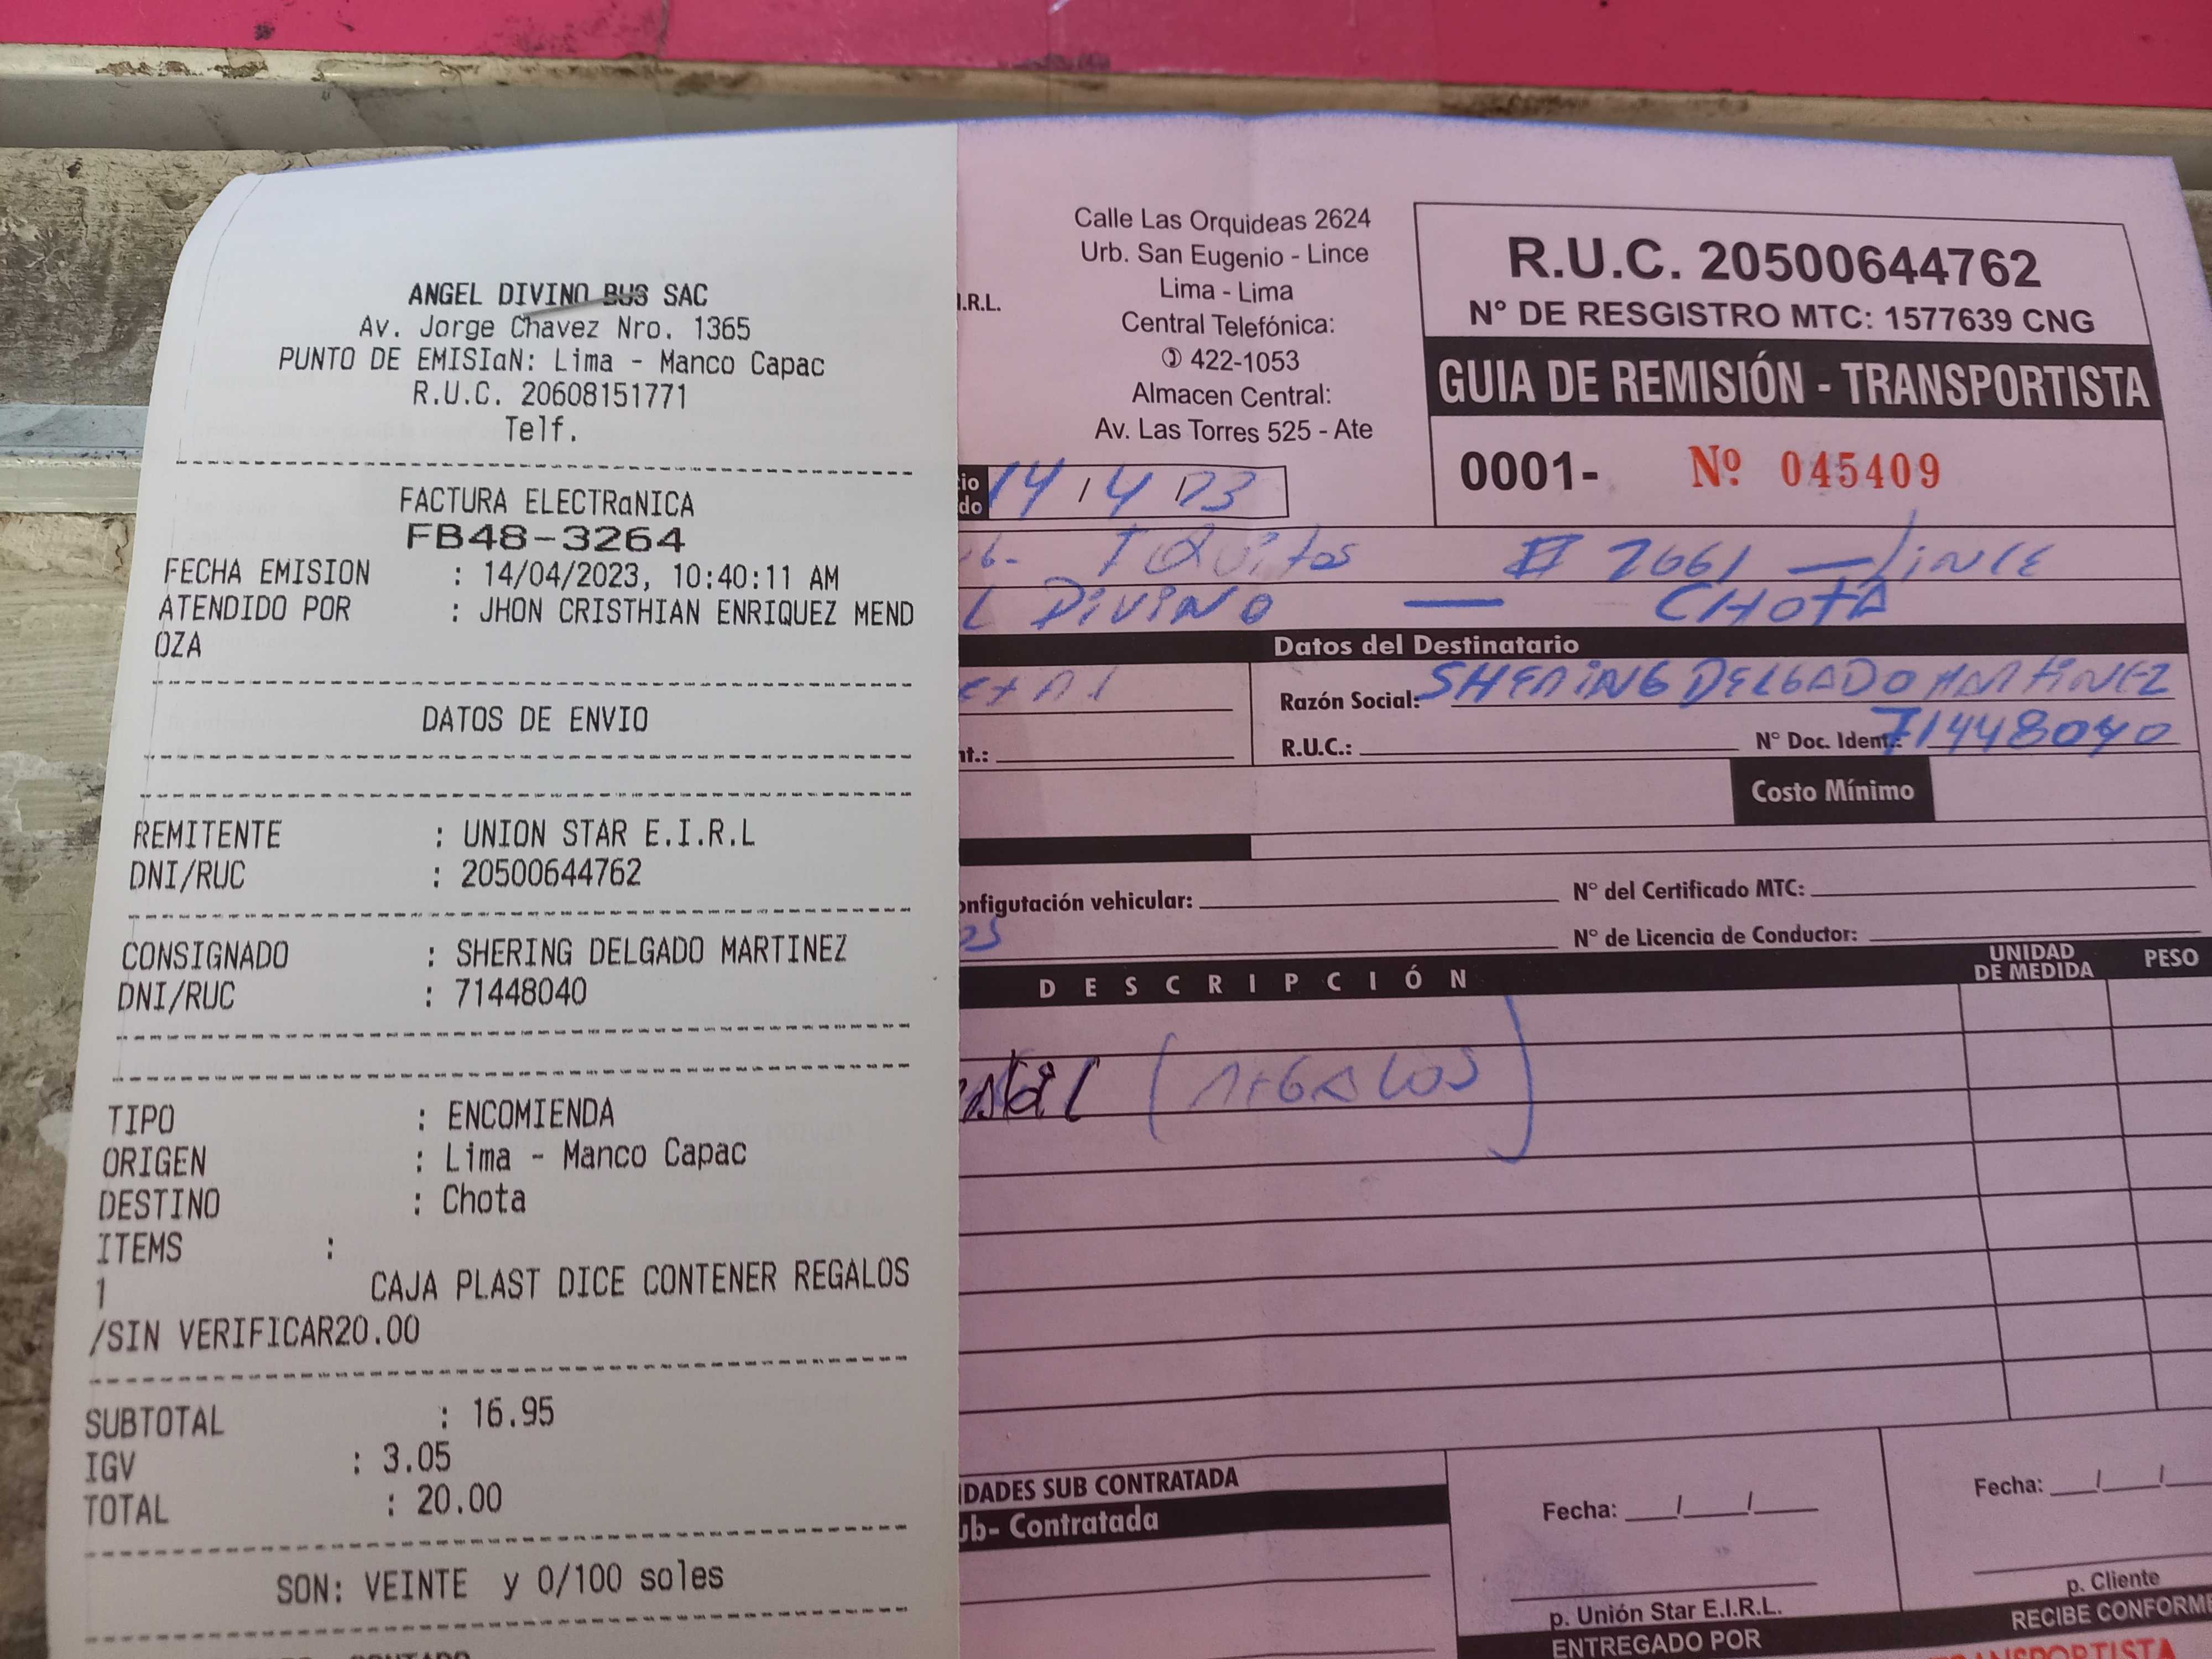 ANGEL DIVINO BUS SAC
Av. Jorge Chavez Nro. 1365
PUNTO DE EMISIαN: Lima - Manco Capac
R.U.C. 20608151771
Telf.
FACTURA ELECTRαNICA
FB48-3264
FECHA EMISION : 14/04/2023, 10:40:11 AM
ATENDIDO POR : JHON CRISTHIAN ENRIQUEZ MEND
OZA
DATOS DE ENVIO
REMITENTE : UNION STAR E.I.R.L
DNI/RUC : 20500644762
CONSIGNADO : SHERING DELGADO MARTINEZ
DNI/RUC : 71448040
TIPO : ENCOMIENDA
ORIGEN : Lima - Manco Capac
DESTINO : Chota
ITEMS :
1 CAJA PLAST DICE CONTENER REGALOS
/SIN VERIFICAR20.00
SUBTOTAL : 16.95
IGV : 3.05
TOTAL : 20.00
SON: VEINTE y 0/100 soles
I.R.L.
Calle Las Orquideas 2624
Urb. San Eugenio - Lince
Lima - Lima
Central Telefónica:
✆ 422-1053
Almacen Central:
Av. Las Torres 525 - Ate
R.U.C. 20500644762
N° DE RESGISTRO MTC: 1577639 CNG
GUIA DE REMISIÓN - TRANSPORTISTA
0001- Nº 045409
14 / 4 / 23
IQUITOS # 2661 - LINCE
L DIVINO — CHOTA
Datos del Destinatario
Razón Social: SHERING DELGADO MARTINEZ
R.U.C.: N° Doc. Ident.: 71448040
nt.:
Costo Mínimo
onfigutación vehicular: N° del Certificado MTC:
N° de Licencia de Conductor:
DESCRIPCIÓN UNIDAD DE MEDIDA PESO
(REGALOS)
IDADES SUB CONTRATADA
ub- Contratada
Fecha: __/__/__
Fecha: __/__/__
p. Unión Star E.I.R.L.
ENTREGADO POR
p. Cliente
RECIBE CONFORME
TRANSPORTISTA